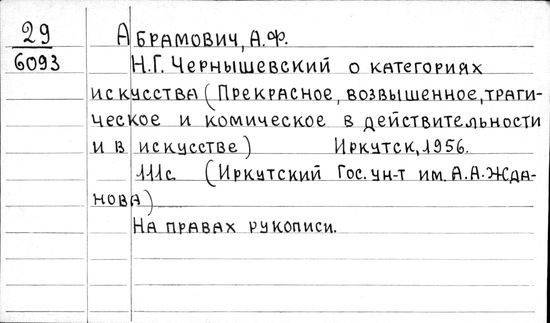 29
6093
Абрамович, А.Ф.
Н.Г. Чернышевский о категориях
искусства (Прекрасное, возвышенное, траги-
ческое и комическое в действительности
и в искусстве) Иркутск, 1956.
111с. (Иркутский Гос. ун-т им. А.А. Жда-
нова)
На правах рукописи.